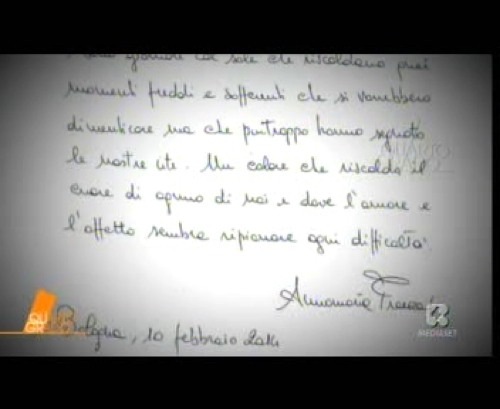 giornate col sole che riscaldano quei
momenti freddi e sofferenti che si vorrebbero
dimenticare ma che purtroppo hanno segnato
le nostre vite. Un calore che riscalda il
cuore di ognuno di noi e dove l'amore e
l'affetto sembra ripianare ogni difficoltà.
Annamaria
Bologna, 10 febbraio 2014
QU
GR
MEDIASET